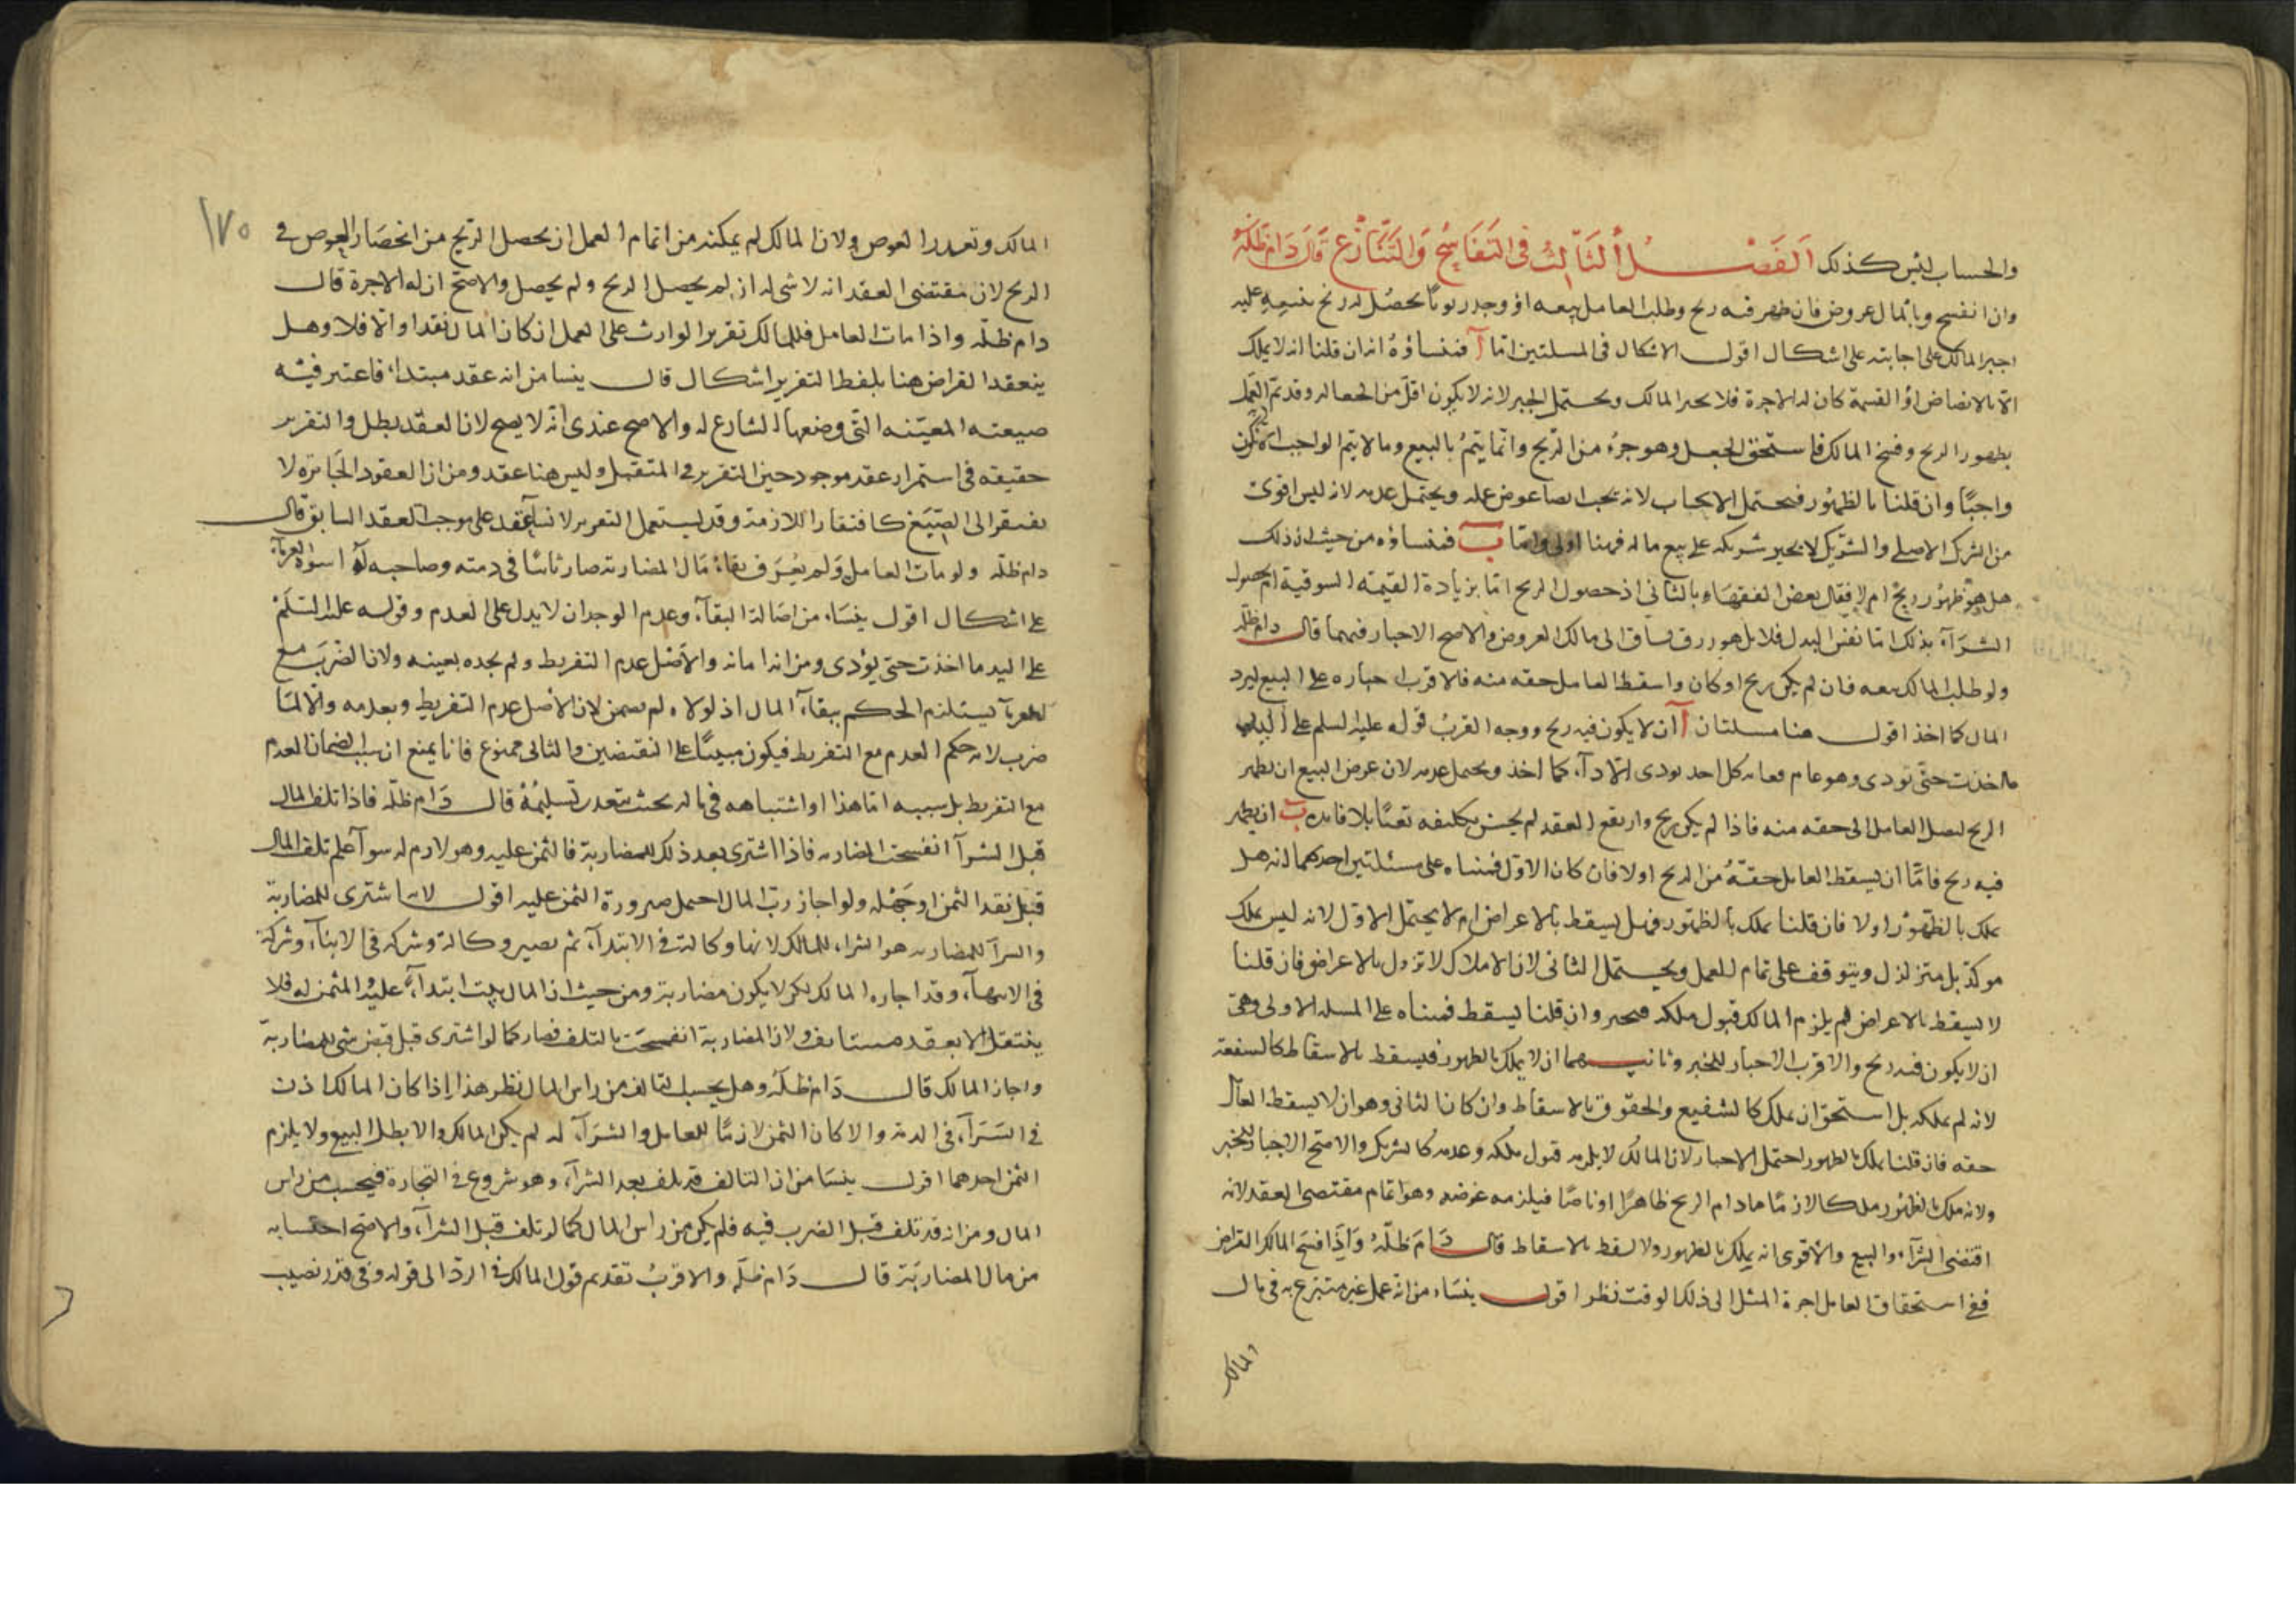 والحساب ليس كذلك الفصل الثالث في التفاسخ والتنازع قال دام ظله
وان انفسخ وبالمال عروض فان ظهر فيه ربح وطلب العامل بيعه او وجد زبونا يحصل له ربح ببيعه عليه
اجبر المالك على اجابته على اشكال اقول الاشكال في المسلتين اما آ فمنشاؤه انه ان قلنا انه لا يملك
الا بالانضاض او القسمة كان له الاجرة فلا يجبر المالك ويحتمل الجبر لانه لا يكون اقل من الجعاله وقد تم العمل
بظهور الربح وفسخ المالك فاستحق الجعل وهو جزء من الربح وانما يتم بالبيع وما لا يتم الواجب الا به يكون
واجبًا وان قلنا بالظهور فيحتمل الايجاب لانه يجب ايصا عوض عمله ويحتمل عدمه لانه ليس اقوى
من الشرك الاصلي والشريك لا يجبر شريكه على بيع ماله فهنا اولى واما ب فمنشاؤه من حيث ان ذلك
هل هو ظهور ربح ام لا فقال بعض الفقهاء بالثاني اذ حصول الربح اما بزيادة القيمه السوقية او بحصول
الشراء بذلك اما نفس البدل فلا بل هو رزق يساق الى مالك العروض والاصح الاجبار فيهما قال دام ظله
ولو طلب المالك بيعه فان لم يكن ربح او كان واسقط العامل حقه منه فالاقرب اجباره على البيع ليرد
المال كما اخذ اقول هنا مسلتان آ ان لا يكون فيه ربح ووجه القرب قوله عليه السلم على اليد
ما اخذت حتى تودى وهو عام فعليه كل احد يودى الاداء كما اخذ ويحتمل عدمه لان غرض البيع ان يظهر
الربح ليصل العامل الى حقه منه فاذا لم يكن ربح وارتفع العقد لم يحسن تكليفه تعبًا بلا فايدة ب ان يظهر
فيه ربح فاما ان يسقط العامل حقه من الربح اولا فان كان الاول فمبناه على مسئلتين احدهما انه هل
يملك بالظهور اولا فان قلنا يملك بالظهور فهل يسقط بالاعراض ام لا يحتمل الاول لانه ليس بملك
موكد بل متزلزل ويتوقف على تمام العمل ويحتمل الثاني لان الاملاك لا تزول بالاعراض فان قلنا
لا يسقط بالاعراض لم يلزم المالك قبول ملكه فيجبر وان قلنا يسقط فمبناه على المسله الاولى وهي
ان لا يكون فيه ربح والاقرب الاجبار للخبر وثانيهما ان لا يملك بالظهور فيسقط بالاسقاط كالشفعة
لانه لم يملكه بل استحق ان يملك كالشفيع والحقوق بالاسقاط وان كان الثاني وهو ان لا يسقط العامل
حقه فان قلنا يملك بالظهور احتمل الاجبار لان المالك لا يلزمه قبول ملكه وعدمه كالشريك والاصح الاجبار للخبر
ولانه ملك بالظهور ملكا لازمًا مادام الربح ظاهرًا او ناضًا فيلزمه عوضه وهو اتمام مقتضى العقد لانه
اقتضى الشراء والبيع والاقوى انه يملك بالظهور ولا يسقط بالاسقاط قال دام ظله واذا فسخ المالك القراض
ففي استحقاق العامل اجرة المثل الى ذلك الوقت نظر اقول ينشاء من انه عمل غير متبرع به في مال
المالك
١٧٥
المالك وتعدر العوض ولان المالك لم يمكنه من اتمام العمل ان يحصل الربح من انحصار العوض في
الربح لان مقتضى العقد انه لا شي له ان لم يحصل الربح ولم يحصل والاصح ان له الاجرة قال
دام ظله واذا مات العامل فللمالك تقرير الوارث على العمل ان كان المال نقدا والا فلا وهل
ينعقد القراض هنا بلفظ التقرير اشكال قال ينشا من انه عقد مبتدا، فاعتبر فيه
صيغته المعينه التي وضعها الشارع له والاصح عندي انه لا يصح لان العقد بطل والتقرير
حقيقه في استمرار عقد موجود حين التقرير في المستقبل وليس هنا عقد ومن ان العقود الجايزه لا
يفتقر الى الصيغ كافتقار اللازمة وقد يستعمل التقرير لانشا عقد على موجب العقد السابق قال
دام ظله ولو مات العامل ولم يعرف بقاء مال المضاربة صار ثابتًا في ذمته وصاحبه اسوة الغرماء
على اشكال اقول ينشاء من اصالة البقاء وعدم الوجدان لا يدل على العدم وقوله عليه السلم
على اليد ما اخذت حتى يؤدى ومن انه امانه والاصل عدم التفريط ولم يجده بعينه ولان الضرب مع
الغرماء يستلزم الحكم ببقاء المال اذ لولاه لم يضمن لان الاصل عدم التفريط وبعدمه والا لما
ضرب لانه حكم العدم مع التفريط فيكون مبنيًا على النقيضين والثاني ممنوع فانا يمنع ان سبب الضمان العدم
مع التفريط بل سببه اما هذا او اشتباهه في ماله بحيث يتعدر تسليمه قال دام ظله فاذا تلف المال
قبل الشراء انفسخت المضاربه فاذا اشترى بعد ذلك للمضاربة فالثمن عليه وهو لازم له سواء علم تلف المال
قبل نقد الثمن او جهله ولو اجاز رب المال احتمل صيرورة الثمن عليه اقول لانه اشترى للمضاربة
والشراء للمضاربه هو الشراء للمالك لانها وكالة في الابتداء ثم يصير وكالة وشركه في الاثناء وشركة
في الانتهاء وقد اجازه المالك لكن لا يكون مضاربة ومن حيث ان المال يثبت ابتداء عليه المثمن له فلا
ينتقل الا بعقد مستانف ولان المضاربة انفسخت بالتلف فصار كما لو اشترى قبل قبض شي للمضاربة
واجاز المالك قال دام ظله وهل يحسب التالف من راس المال نظر هذا اذا كان المالك اذن
في الشراء في الذمة والا كان الثمن لازمًا للعامل والشراء له ان لم يكن المالك والا بطل البيع ولا يلزم
الثمن احدهما اقول ينشا من ان التالف قد تلف بعد الشراء وهو شروع في التجارة فيحسب من راس
المال ومن انه قد تلف قبل الضرب فيه فلم يكن من راس المال كما لو تلف قبل الشراء والاصح احتسابه
من مال المضاربة قال دام ظله والاقرب تقديم قول المالك في الرد الى قوله وفي قدر نصيب